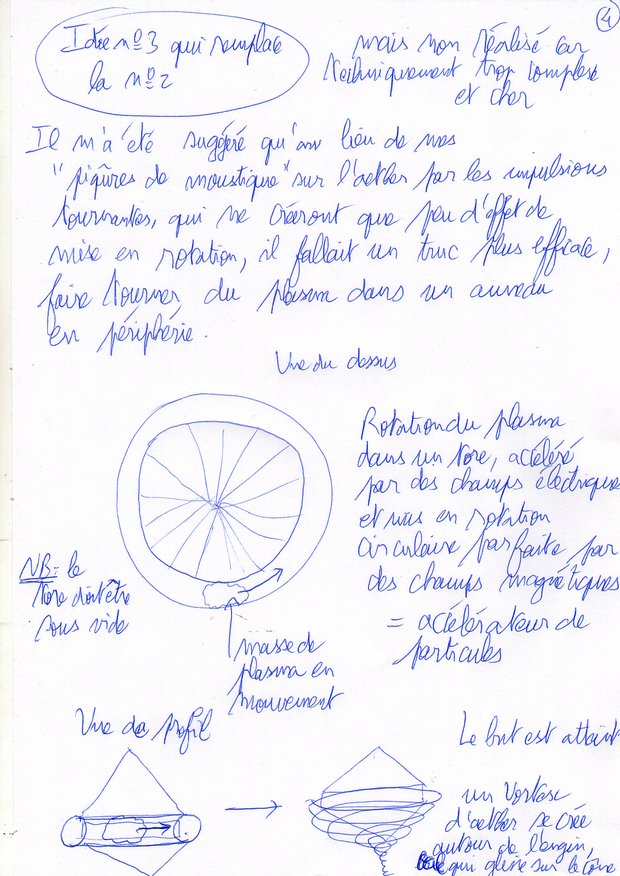 4
Idée n° 3 qui remplace
la n° 2
mais non réalisé car
techniquement trop complexe
et cher
Il m'a été suggéré qu'au lieu de mes
"piqûres de moustique" sur l'aether par les impulsions
tournantes, qui ne créeront que peu d'effet de
mise en rotation, il fallait un truc plus efficace,
faire tourner du plasma dans un anneau
en périphérie.
Vue du dessus
Rotation du plasma
dans un tore, accéléré
par des champs électriques
et mis en rotation
circulaire parfaite par
des champs magnétiques
= accélérateur de
particules
NB = le
tore doit être
sous vide
masse de
plasma en
mouvement
Vue de profil
Le but est atteint
un vortex
d'aether se crée
autour de l'engin,
qui glisse sur le cône